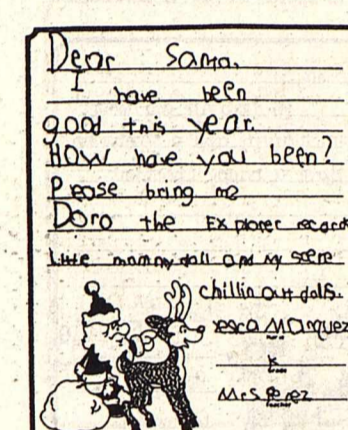 Dear Sama,
I have been
good this year.
HOW have you been?
Prease bring me
Doro the Explorer record
Little mommy doll and My scene
chillin out dolls.
esca Marquez
K
Grade
Mrs Perez
Teacher